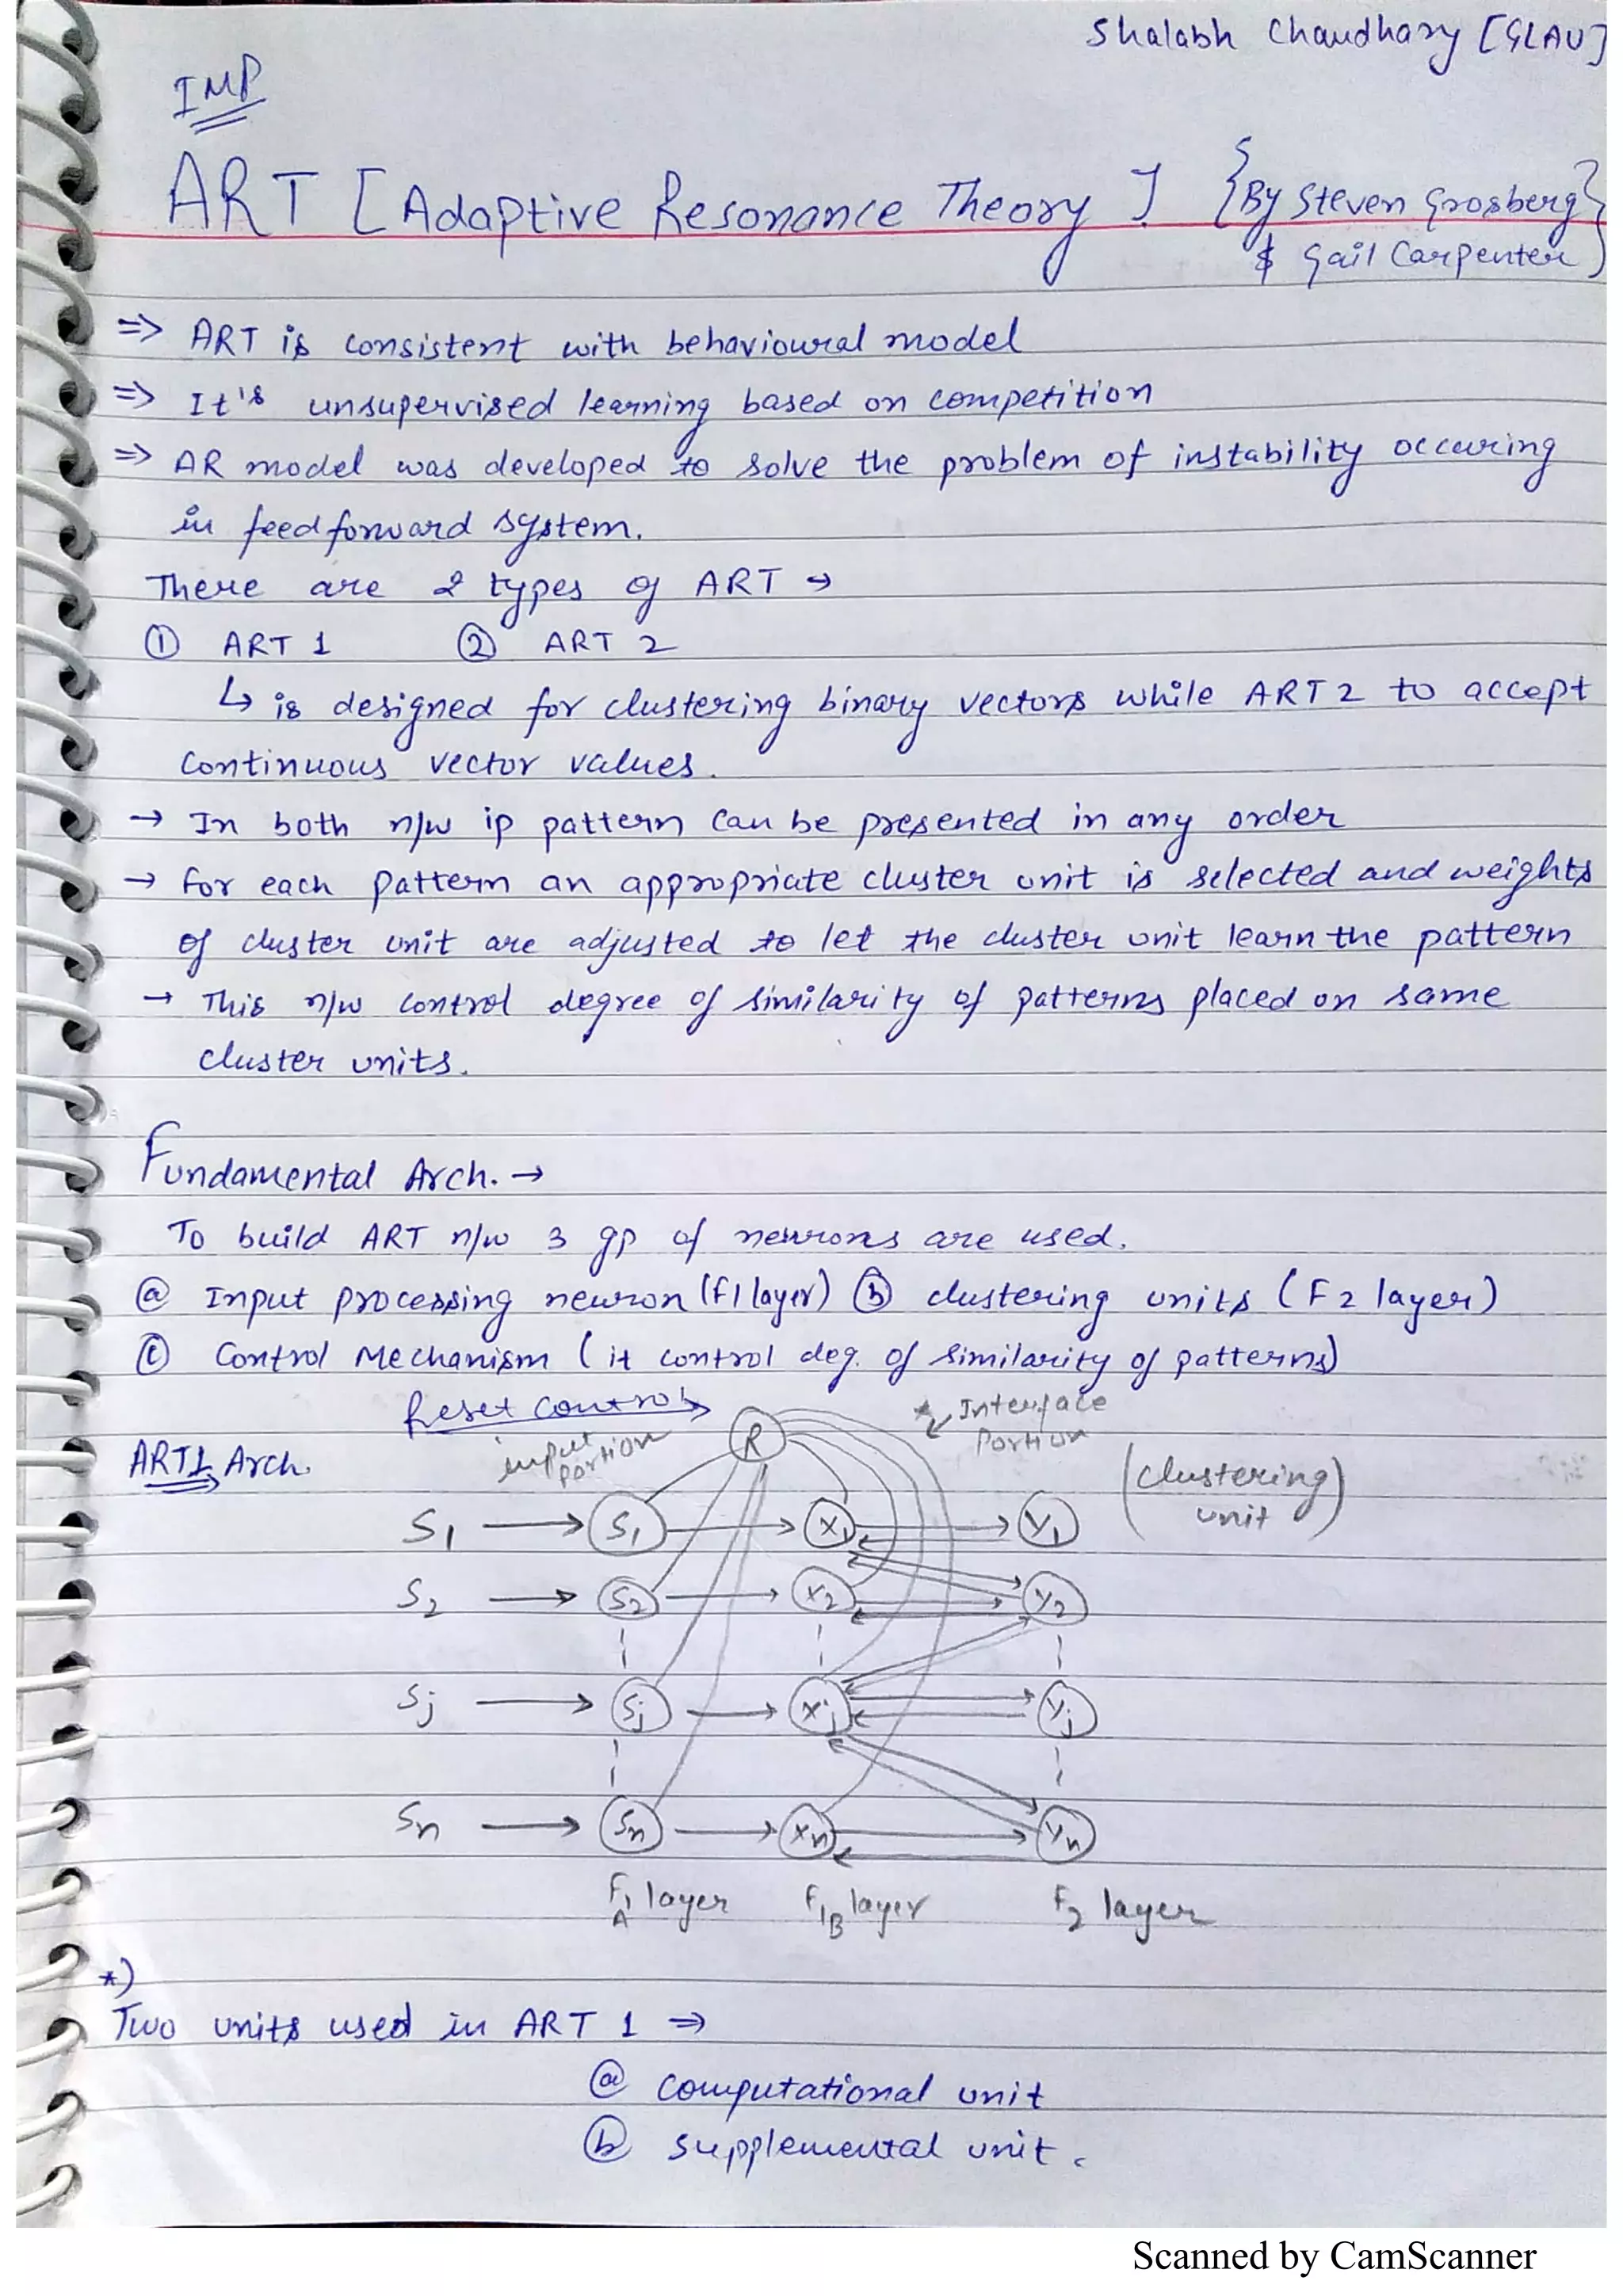 Shalabh Chaudhary [GLAU]
IMP
ART [Adaptive Resonance Theory] {By Steven Grosberg
& Gail Carpenter}
=> ART is consistent with behavioural model
=> It's unsupervised learning based on competition
=> AR model was developed to solve the problem of instability occuring
in feed forward system.
There are 2 types of ART →
① ART 1 ② ART 2
↳ is designed for clustering binary vectors while ART 2 to accept
continuous vector values.
→ In both n/w ip pattern can be presented in any order
→ for each pattern an appropriate cluster unit is selected and weights
of cluster unit are adjusted to let the cluster unit learn the pattern
→ This n/w control degree of similarity of patterns placed on same
cluster units.
Fundamental Arch. →
To build ART n/w 3 gp of neurons are used.
ⓐ Input processing neuron (F1 layer) ⓑ clustering units (F2 layer)
ⓒ Control Mechanism (it control deg. of similarity of patterns)
Reset control → R Interface
Portion
ART1 Arch. input
portion
(clustering
unit)
S1 → S1 → X1 → Y1
S2 → S2 → X2 → Y2
Sj → Sj → Xj → Yj
Sn → Sn → Xn → Yn
F1A layer F1B layer F2 layer
*)
Two units used in ART 1 =>
ⓐ computational unit
ⓑ supplemental unit.
Scanned by CamScanner